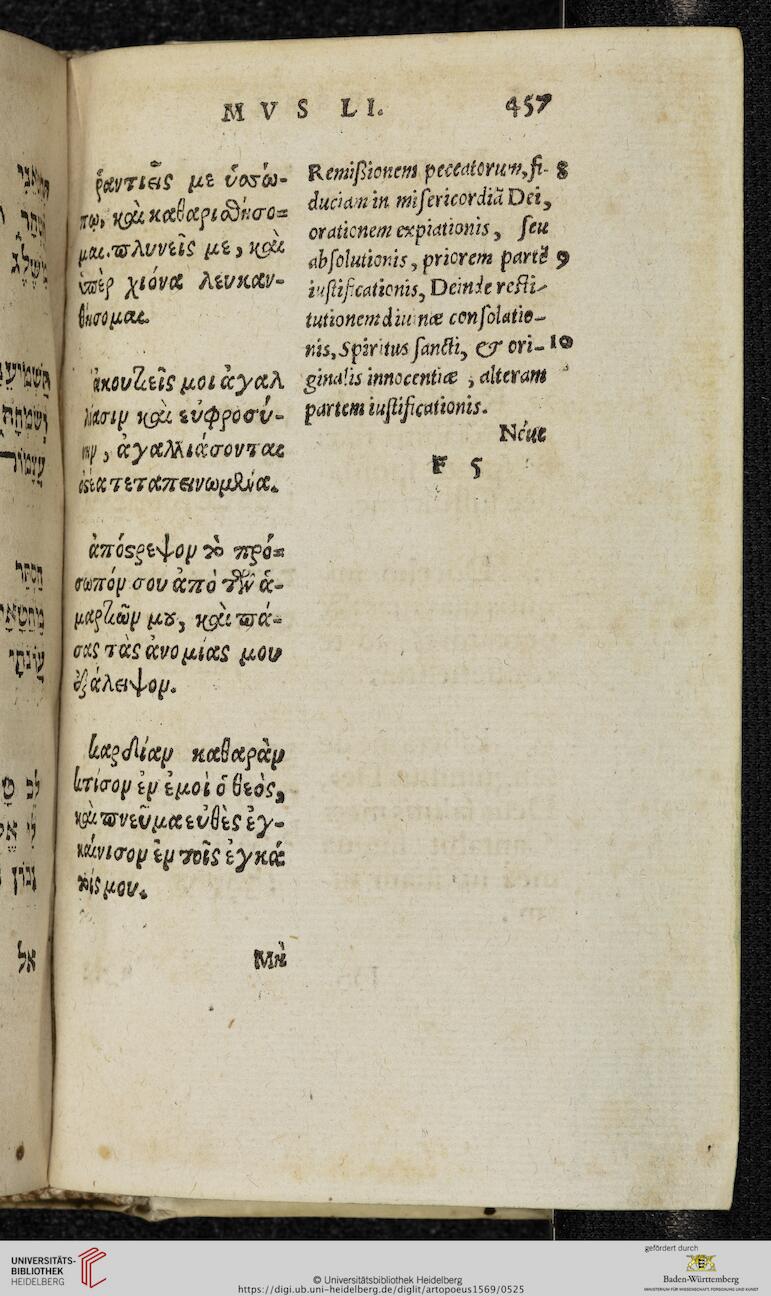 M V S LI. 457
ῥαντιεῖς με ὑσσώ-
πῳ, καὶ καθαρισθήσο-
μαι. πλυνεῖς με, καὶ
ὑπὲρ χιόνα λευκαν-
θήσομαι.
ἀκουτιεῖς μοι ἀγαλ
λίασιν καὶ εὐφροσύ-
νην, ἀγαλλιάσονται
ὀστέα τεταπεινωμένα.
ἀπόστρεψον τὸ πρό-
σωπόν σου ἀπὸ τῶν ἁ-
μαρτιῶν μου, καὶ πά-
σας τὰς ἀνομίας μου
ἐξάλειψον.
καρδίαν καθαρὰν
κτίσον ἐν ἐμοὶ ὁ θεὸς,
καὶ πνεῦμα εὐθὲς ἐγ-
καίνισον ἐν τοῖς ἐγκά
τοις μου.
Μὴ
Remißionem peccatorum, fi- 8
duciam in misericordiā Dei,
orationem expiationis, seu
absolutionis, priorem partē 9
iustificationis, Deinde resti-
tutionem diuinæ consolatio-
nis, Spiritus sancti, & ori- 10
ginalis innocentiæ, alteram
partem iustificationis.
Néue
F 5
UNIVERSITÄTS-
BIBLIOTHEK
HEIDELBERG
© Universitätsbibliothek Heidelberg
https://digi.ub.uni-heidelberg.de/diglit/artopoeus1569/0525
gefördert durch
Baden-Württemberg
MINISTERIUM FÜR WISSENSCHAFT, FORSCHUNG UND KUNST